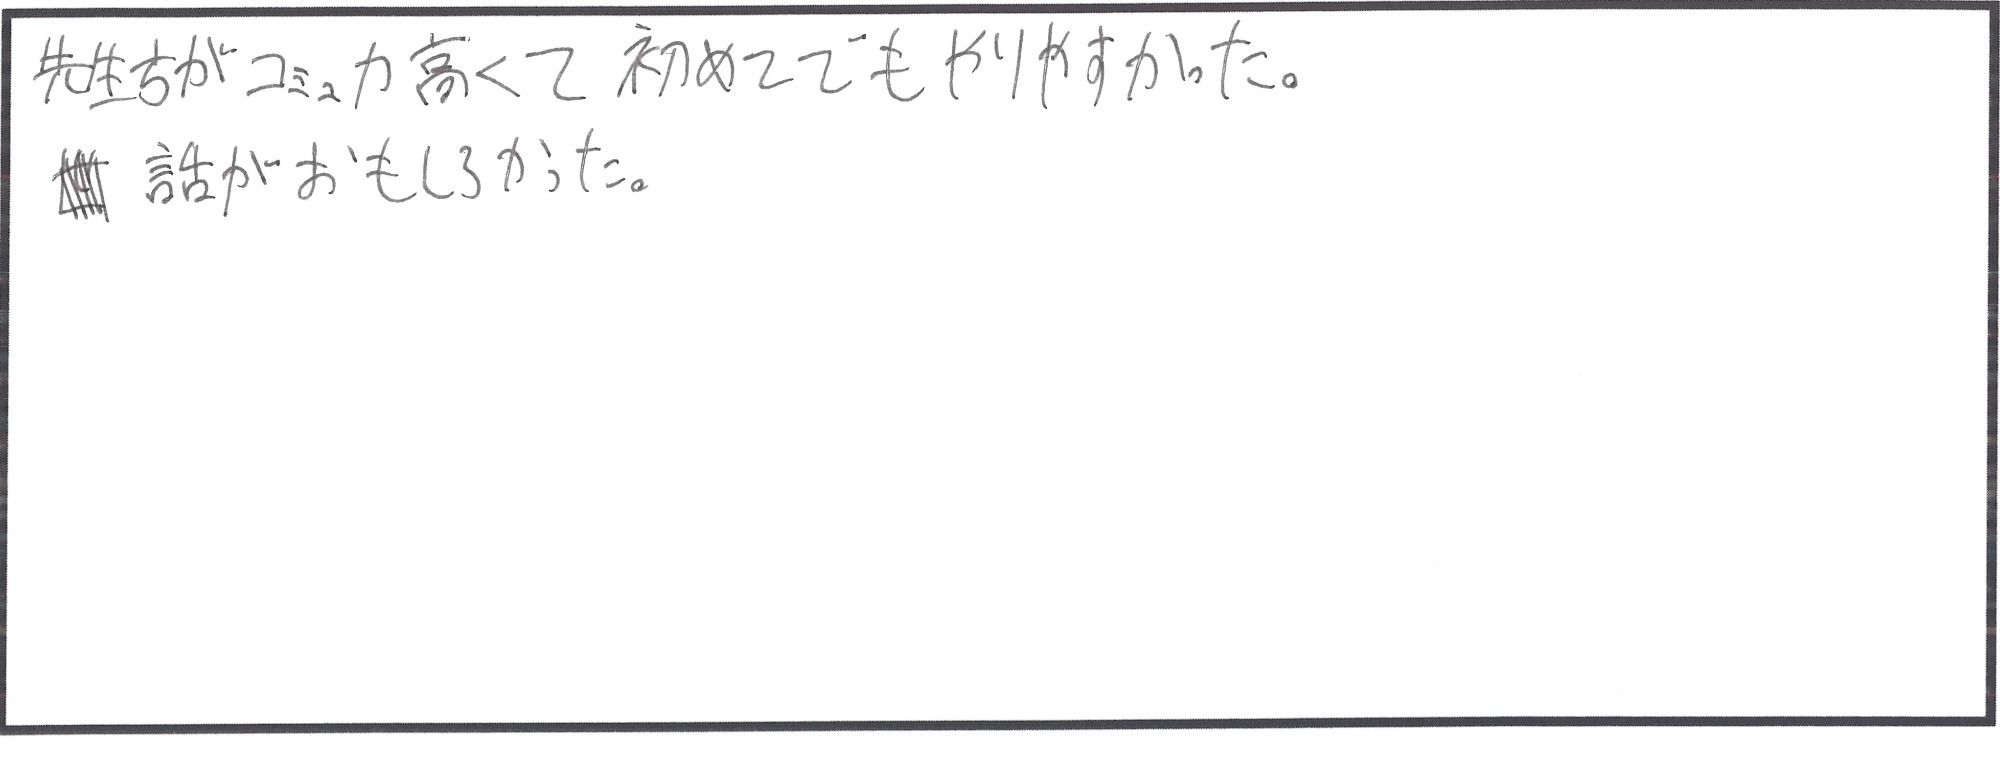 先生方がコミュ力高くて初めてでもやりやすかった。
話がおもしろかった。